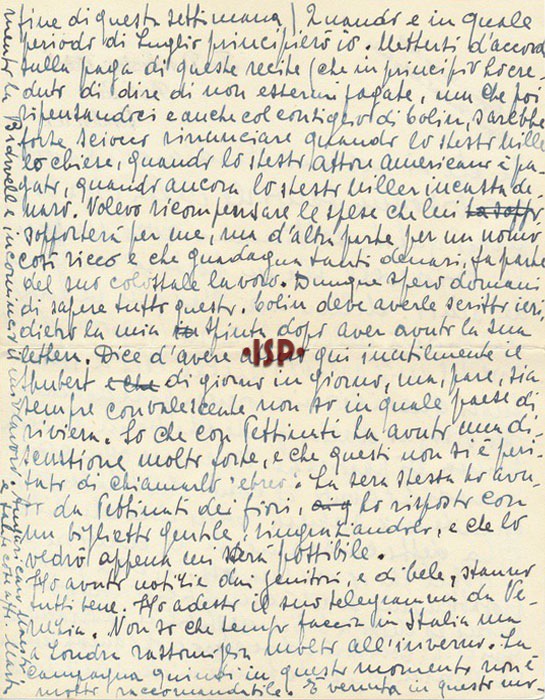 fine di questa settimana) Quando e in quale
periodo di Luglio principierò io. Metterti d'accordo
sulla paga di queste recite (che in principio ho cre-
duto di dire di non essermi pagate, ma che poi
ripensandoci e anche col consiglio di Colin, sarebbe
forse, sciocco rinunciare quando lo stesso Miller
lo chiese, quando lo stesso attore americano è pa-
gato, quando ancora lo stesso Miller incassa de-
naro. Volevo ricompensare le spese che lui
sopporterà per me, ma d'altra parte per un uomo
così ricco e che guadagna tanti denari, fa parte
del suo colossale lavoro. Dunque spero domani
di sapere tutto questo. Colin deve averle scritto ieri,
dietro la mia spinta dopo aver avuto la sua
lettera. Dice d'avere qui inutilmente il
Shubert di giorno in giorno, ma, pare, sia
sempre convalescente non so in quale paese di
riviera. So che con Pettinati ha avuto una di-
scussione molto forte, e che questi non si è peri-
tato di chiamarlo "ebreo". La sera stessa ho avu-
to da Pettinati dei fiori, ho risposto con
un biglietto gentile, ringraziandolo, e che lo
vedrò appena mi sarà possibile.
Ho avuto notizia dai genitori, e di bele, stanno
tutti bene. Ho adesso il suo telegramma da Ve-
nezia. Non so che tempo faccia in Italia ma
a Londra rassomiglia molto all'inverno. La
campagna quindi in questo momento non è
molto raccomandabile. È venuta in questo mo-
mento la Braswell e incomincio il mio lavoro
ISP